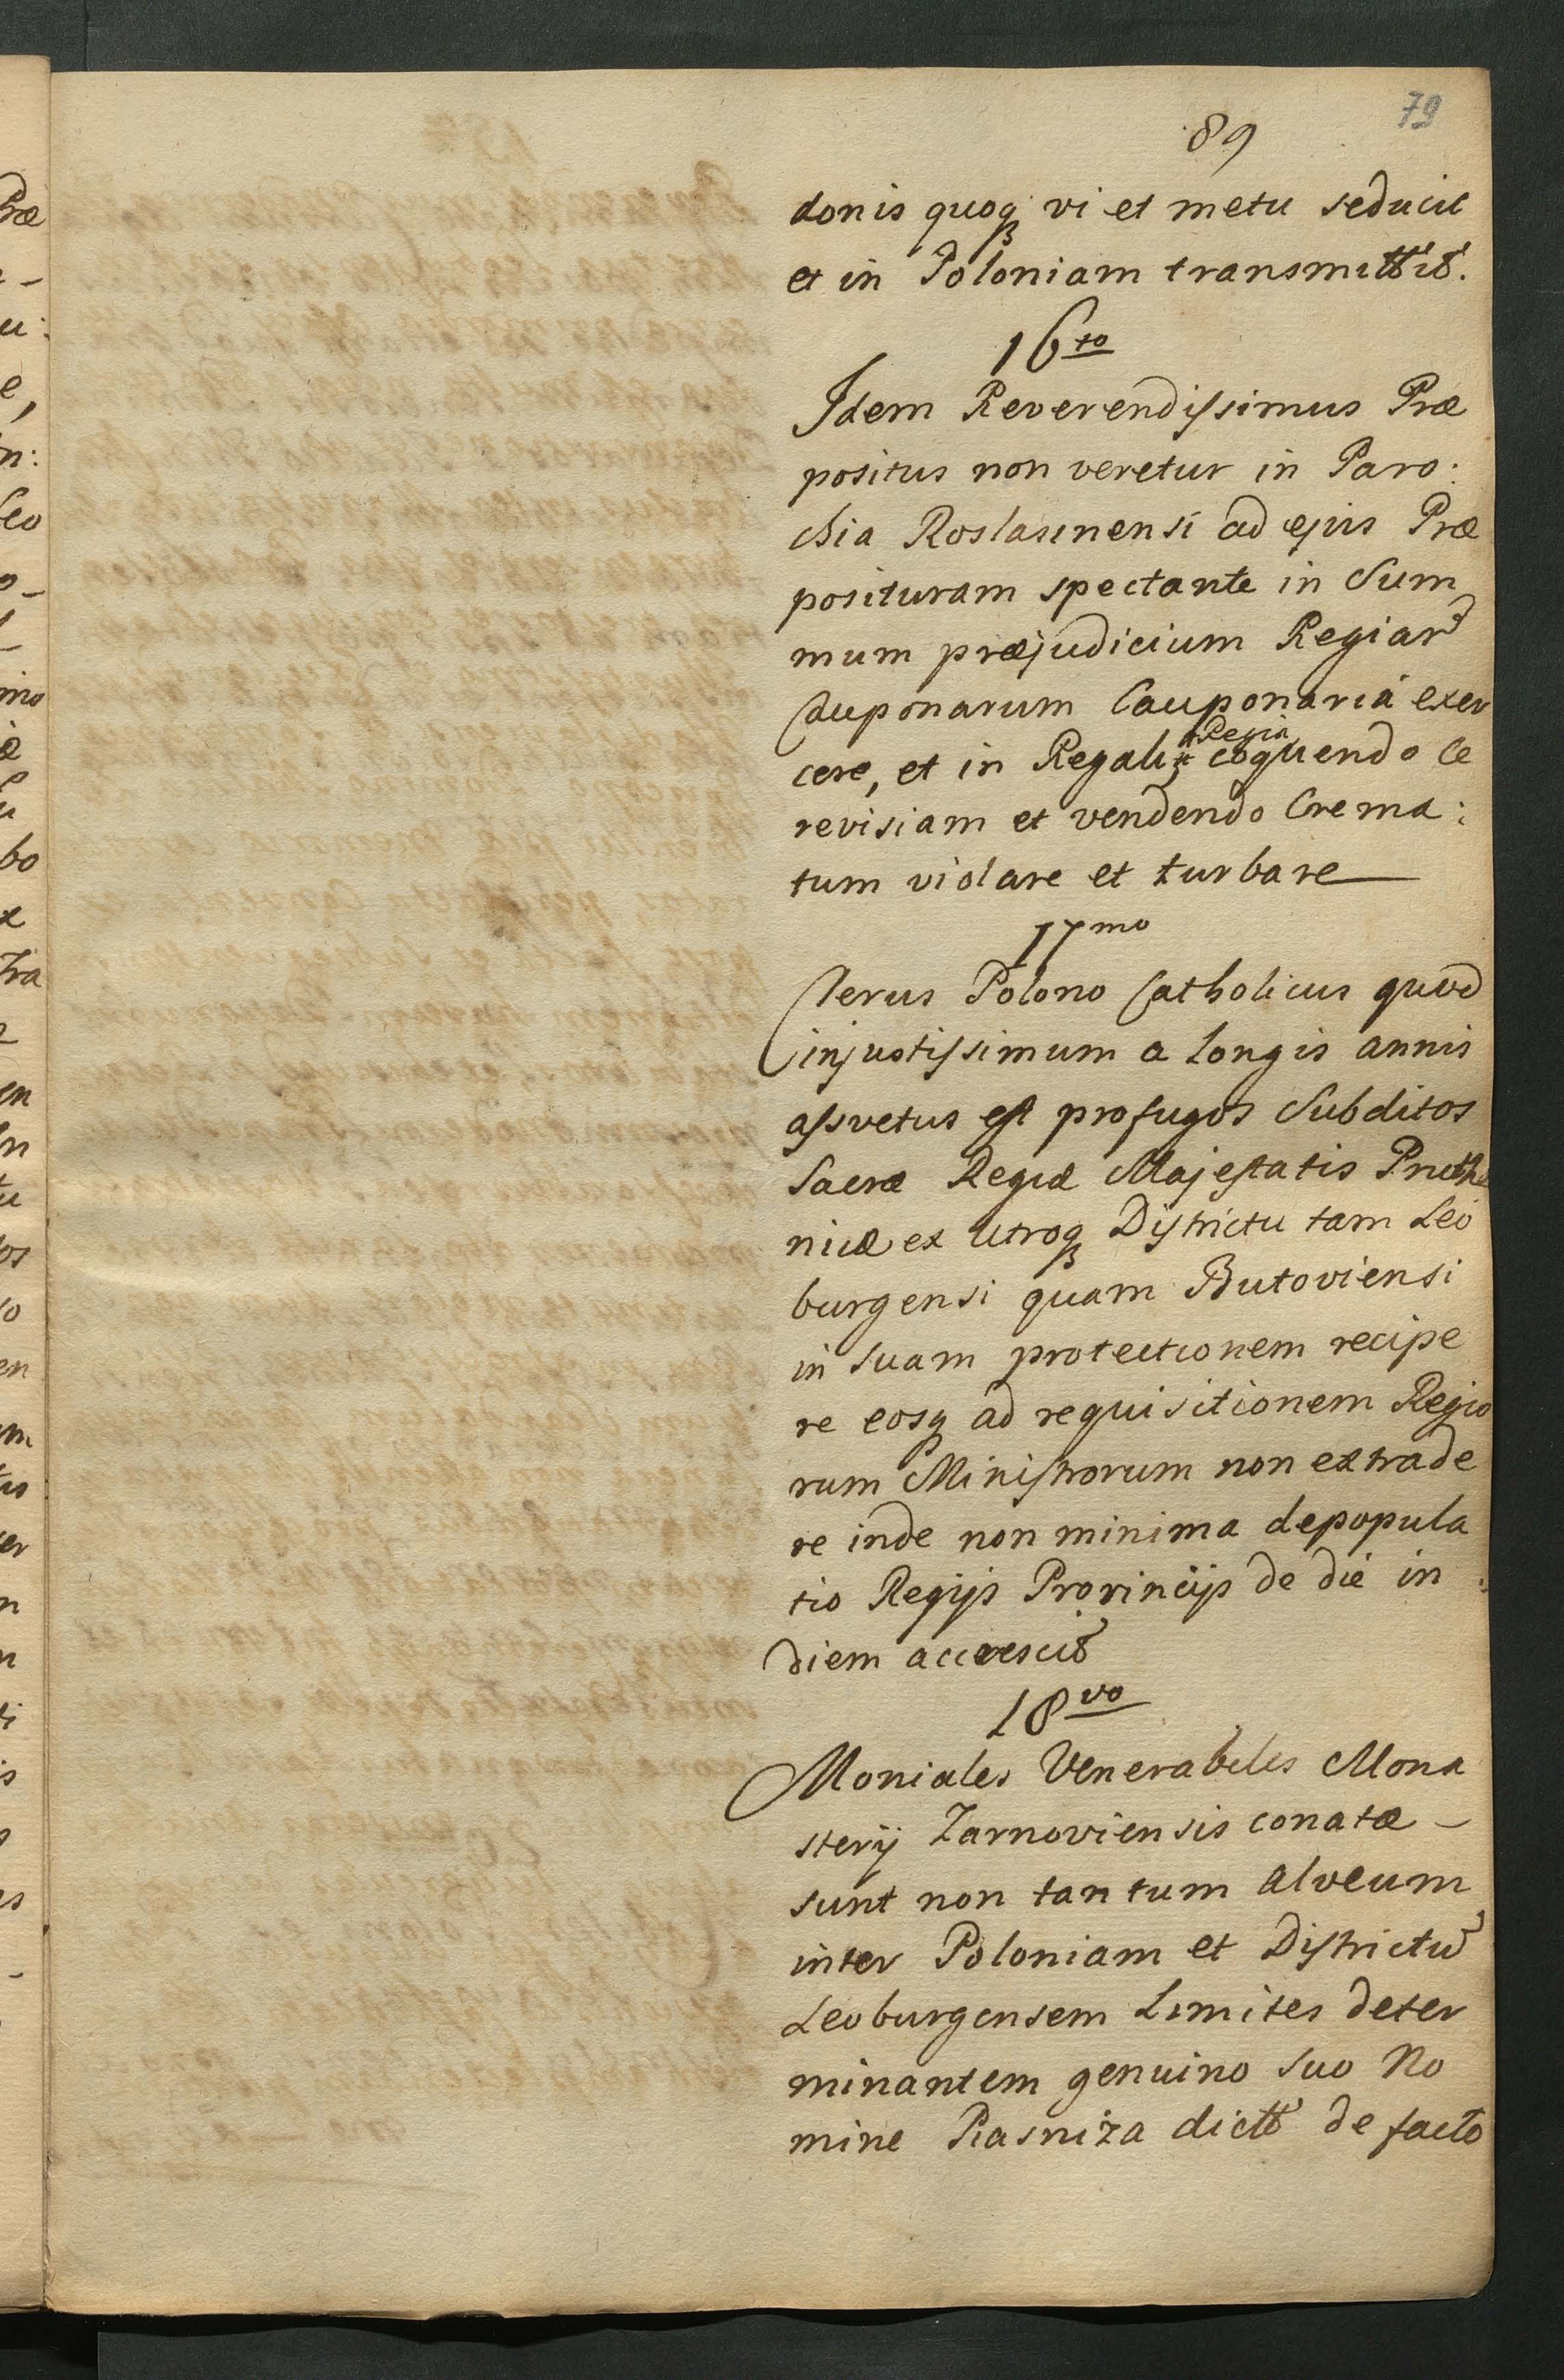 79
89
donis quoq vi et metu seducit
et in Poloniam transmittit.
16to
Idem Reverendissimus Præ
positus non veretur in Paro:
chia Roslasinensi ad ejus Præ
posituram spectante in Sum
mum præjudicium Regiar
Cauponarum Cauponariá exer
Regia
cere, et in Regali coquendo Ce
revisiam et vendendo Crema:
tum violare et turbare
17mo
Clerus Polono Catholicus quod
injustissimum a longis annis
assvetus est profugos Subditos
Sacræ Regiæ Majestatis Pruthe
nicæ ex utroq Districtu tam Leo
burgensi quam Butoviensi
in suam protectionem recipe
re eosq ad requisitionem Regio
rum Ministrorum non extrade
re inde non minima depopula
tio Regijs Provincijs de die in
diem accrescit
18vo
Moniales Venerabiles Mona
sterij Zarnoviensis conatæ -
sunt non tantum alveum
inter Poloniam et Districtū
Leoburgensem Limites deter
minantem genuino suo No
mine Rasniza dictū de facto